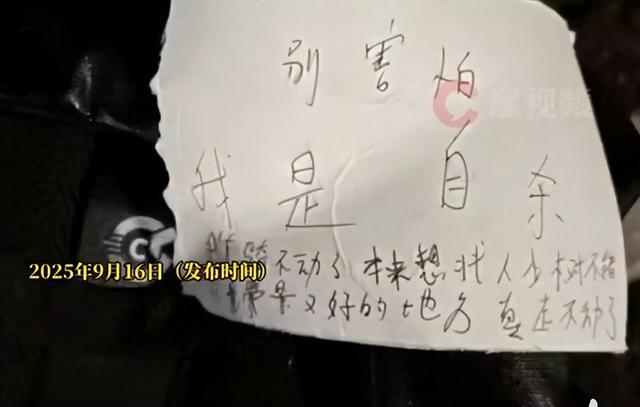 别害怕
星视频
我是自杀
不动了 本来想找人少
2025年9月16日（发布时间）
景又好的地方 真走不动了